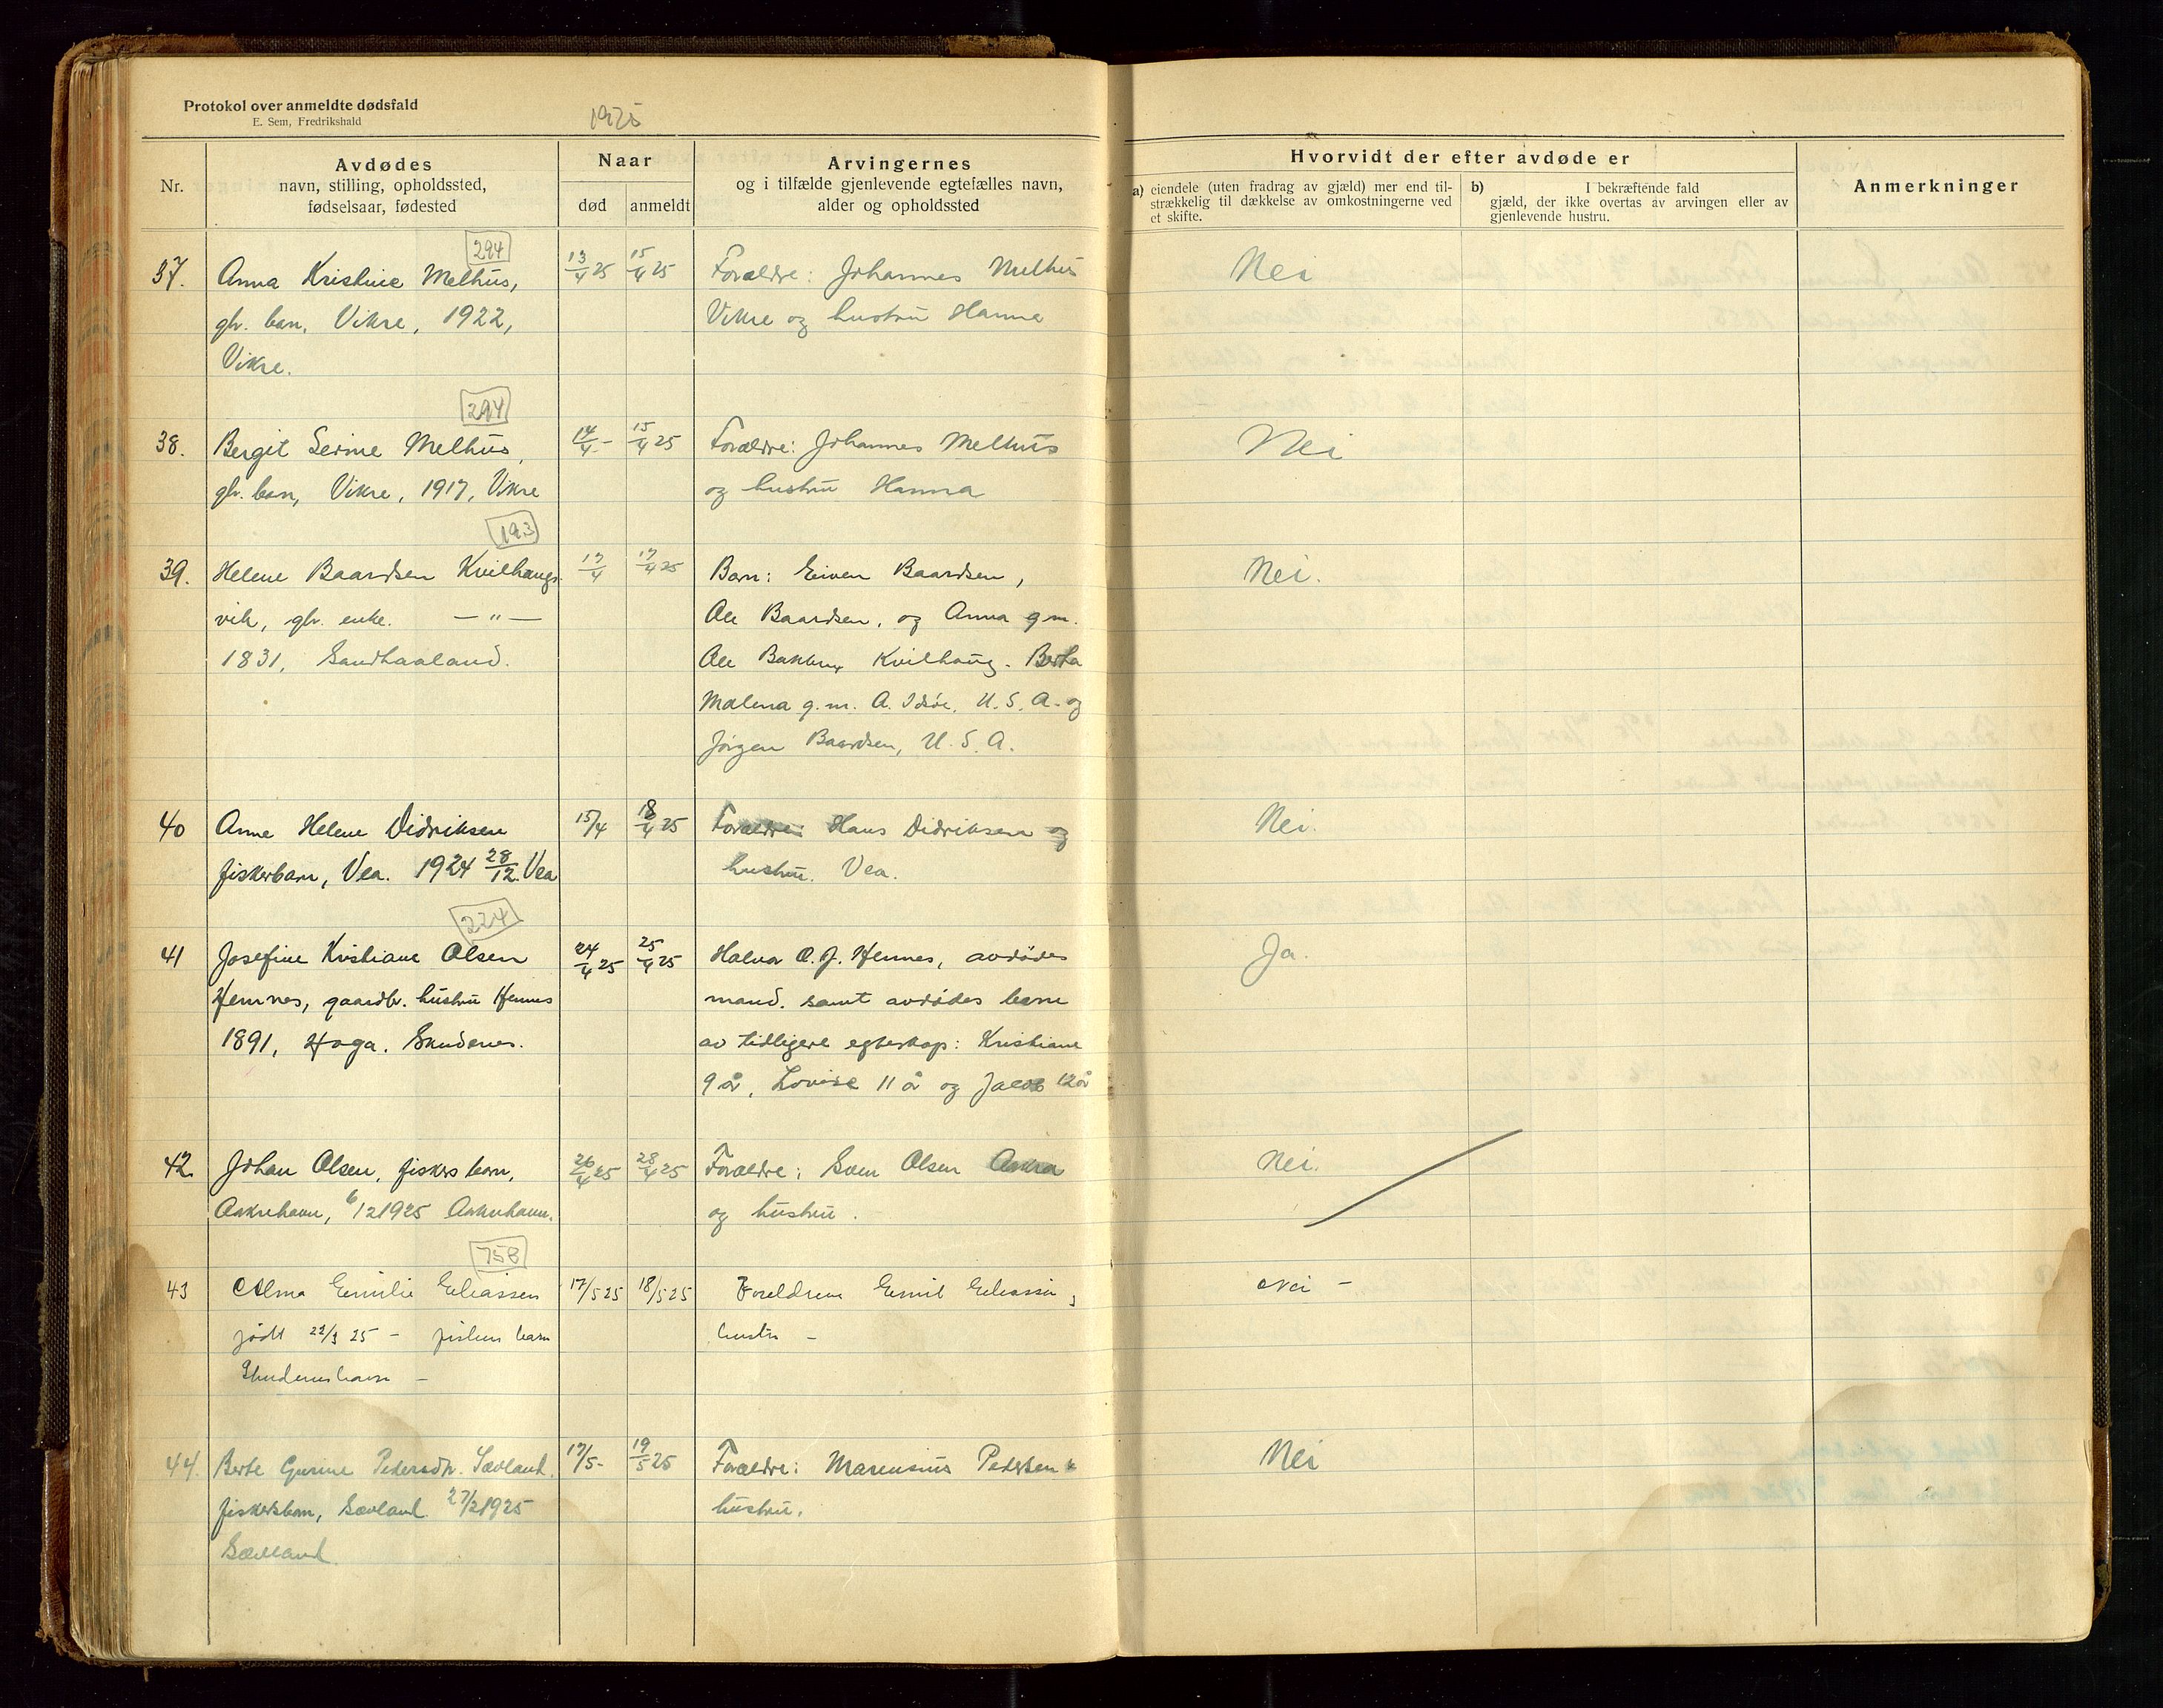 Protokol over anmeldte dødsfald
E. Sem, Fredrikshald
1925
Nr.
Avdødes
navn, stilling, opholdssted,
fødselsaar, fødested
Naar
død
anmeldt
Arvingernes
og i tilfælde gjenlevende egtefælles navn,
alder og opholdssted
Hvorvidt der efter avdøde er
a) eiendele (uten fradrag av gjæld) mer end til-
strækkelig til dækkelse av omkostningerne ved
et skifte.
b) I bekræftende fald
gjæld, der ikke overtas av arvingen eller av
gjenlevende hustru.
Anmerkninger
294
37. Anna Kristine Melhus, 13/4 25 15/4 25 Forældre: Johannes Melhus Nei
gbr. barn, Vikre, 1922, Vikre og hustru Hanna
Vikre.
294
38. Bergit Serine Melhus, 14/4 - 15/4 25 Forældre: Johannes Melhus Nei
gbr. barn, Vikre, 1917, Vikre og hustru Hanna
193
39. Helene Baardsen Kvilhaugs 17/4 17/4 25 Barn: Eiven Baardsen, Nei.
vik, gbr. enke. — " — Ole Baardsen, og Anna g.m.
1831, Sandhaaland. Ole Kvilhaug. Berta
Malena g.m. A. Idsøe, U.S.A. og
Jørgen Baardsen, U.S.A.
40 Anne Helene Didriksen 15/4 18/4 25 Forældre: Hans Didriksen og Nei.
fiskerbarn, Vea. 1924 28/12. Vea hustru. Vea.
224
41 Josefine Kristiane Olsen 24/4 25 25/4 25 Halvor O. J. Hemnes, avdødes Ja.
Hemnes, gaardbr. hustru Hemnes mand. samt avdødes barn
1891, Hoga. Skudenes. av tidligere egteskap: Kristiane
9 år, Lovise 11 år og Jacob 12 år
42 Johan Olsen, fiskers barn, 26/4 25 28/4 25 Forældre: Sven Olsen Aakra Nei.
Aakrehavn, 6/2 1925 Aakrehavn. og hustru.
758
43 Alma Emilie Eliassen 17/5 25 18/5 25 Foreldrene Emil Eliassen Nei -
født 22/3 25 - fiskers barn hustr -
Skudeneshavn -
44. Berte Gurine Pedersdtr. Sævland. 17/5 - 19/5 25 Forældre: Marensius Pedersen Nei
fiskersbarn, Sævland 27/2 1925 hustru.
Sævland.